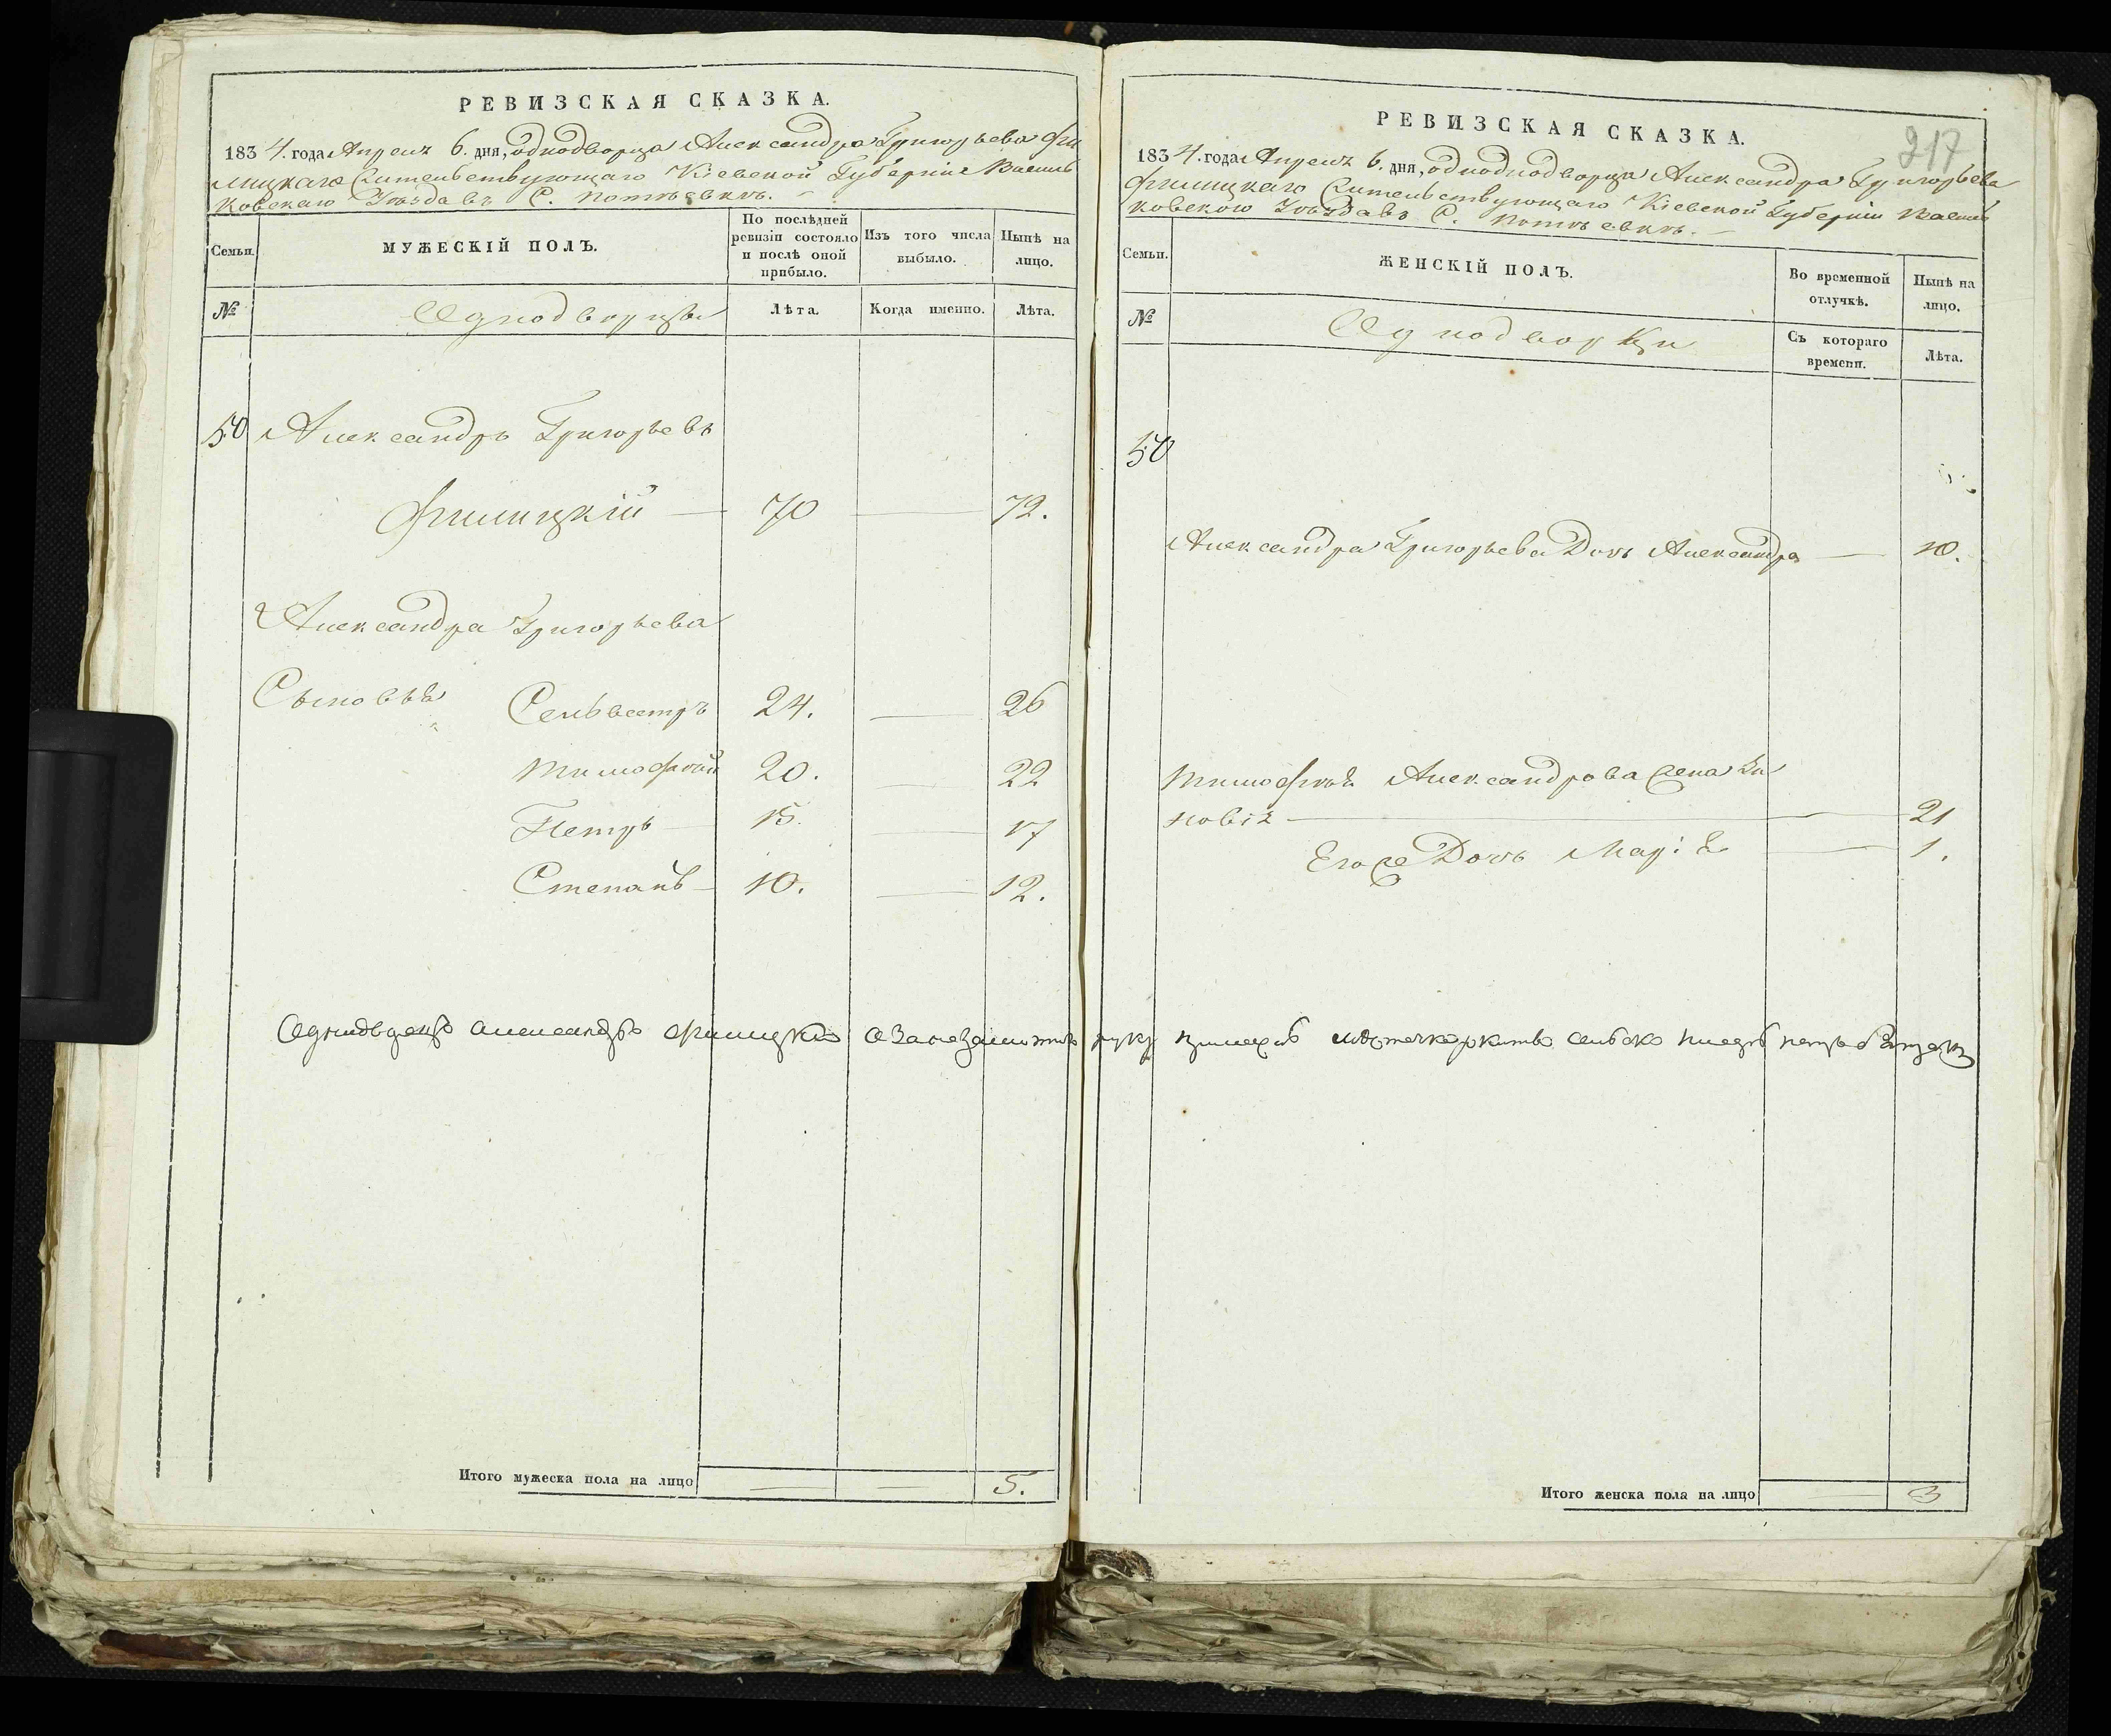 РЕВИЗСКАЯ СКАЗКА.
1834. года Апреля 6. дня, однодворца Александра Григорьева Фи
лицкаго Жительствующаго Кіевской Губерніи Василь
ковскаго Уѣзда въ С. Потіевкѣ.
Семьи.
МУЖЕСКІЙ ПОЛЪ.
По послѣдней ревизіи состояло и послѣ оной прибыло.
Изъ того числа выбыло.
Нынѣ на лицо.
№
Однодворцы
Лѣта.
Когда именно.
Лѣта.
50 Александръ Григорьевъ
Филицкій — 70 — 72.
Александра Григорьева
Сыновья Сельвестръ 24. — 26
Тимофѣй 20. — 22
Петръ — 15. — 17
Степанъ — 10. — 12.
Однодворецъ Александръ Филицкій а за него руку
Итого мужеска пола на лицо — — 5.
217
РЕВИЗСКАЯ СКАЗКА.
1834. года Апреля 6. дня, однодподворца Александра Григорьева
Филицкаго Жительствующаго Кіевской Губерніи Василь
ковского Уѣзда въ С. Потіевкѣ. —
Семьи.
ЖЕНСКІЙ ПОЛЪ.
Во временной отлучкѣ.
Нынѣ на лицо.
№
Однодворки
Съ котораго времени.
Лѣта.
50
Александра Григорьева Дочь Александра — 10.
Тимофѣя Александрова Жена Зи
новія — 21
Его же Дочь Марія — 1.
Итого женска пола на лицо — 3